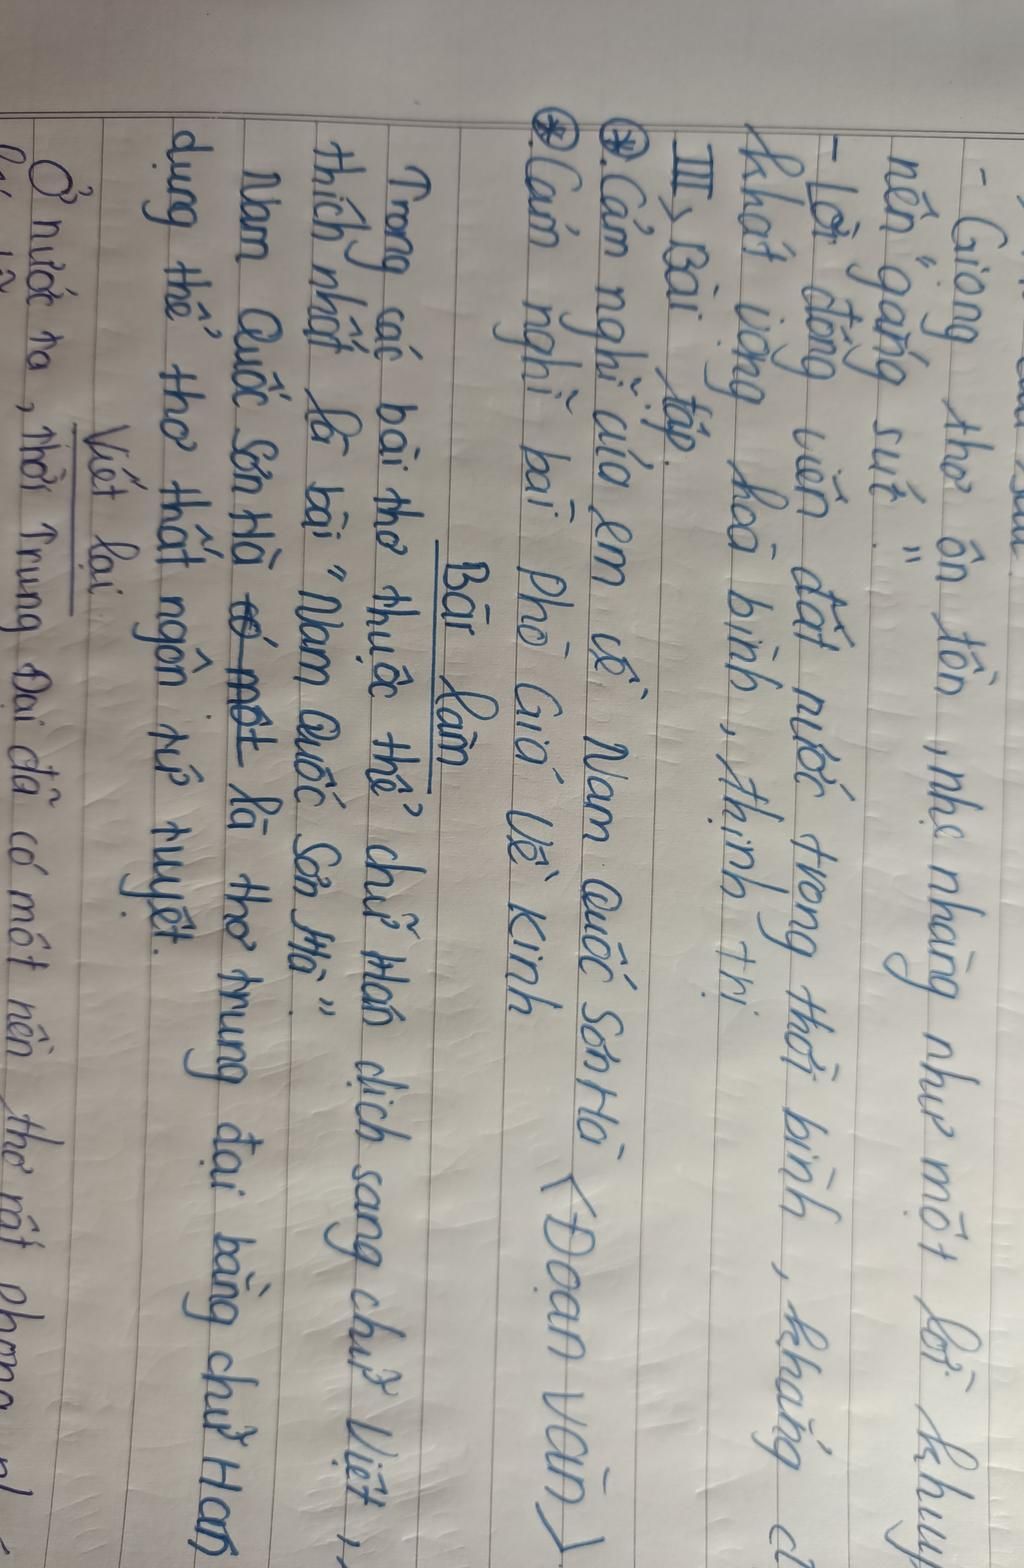 - Giọng thơ ôn tồn, nhẹ nhàng như một lời khuy
nên "gắng sức"
- Lời động viên đất nước trong thời bình, khẳng
khát vọng hoà bình, thịnh trị
III, Bài tập.
*. Cảm nghĩ của em về Nam Quốc Sơn Hà <Đoạn văn>
*. Cảm nghĩ bài Phò Giá Về Kinh
Bài làm
Trong các bài thơ thuộc thể chữ Hán dịch sang chữ Việt,
thích nhất là bài "Nam Quốc Sơn Hà"
Nam Quốc Sơn Hà có một là thơ trung đại bằng chữ Hán
dụng thể thơ thất ngôn tứ tuyệt.
Viết lại
Ở nước ta, thời Trung Đại đã có một nền thơ rất